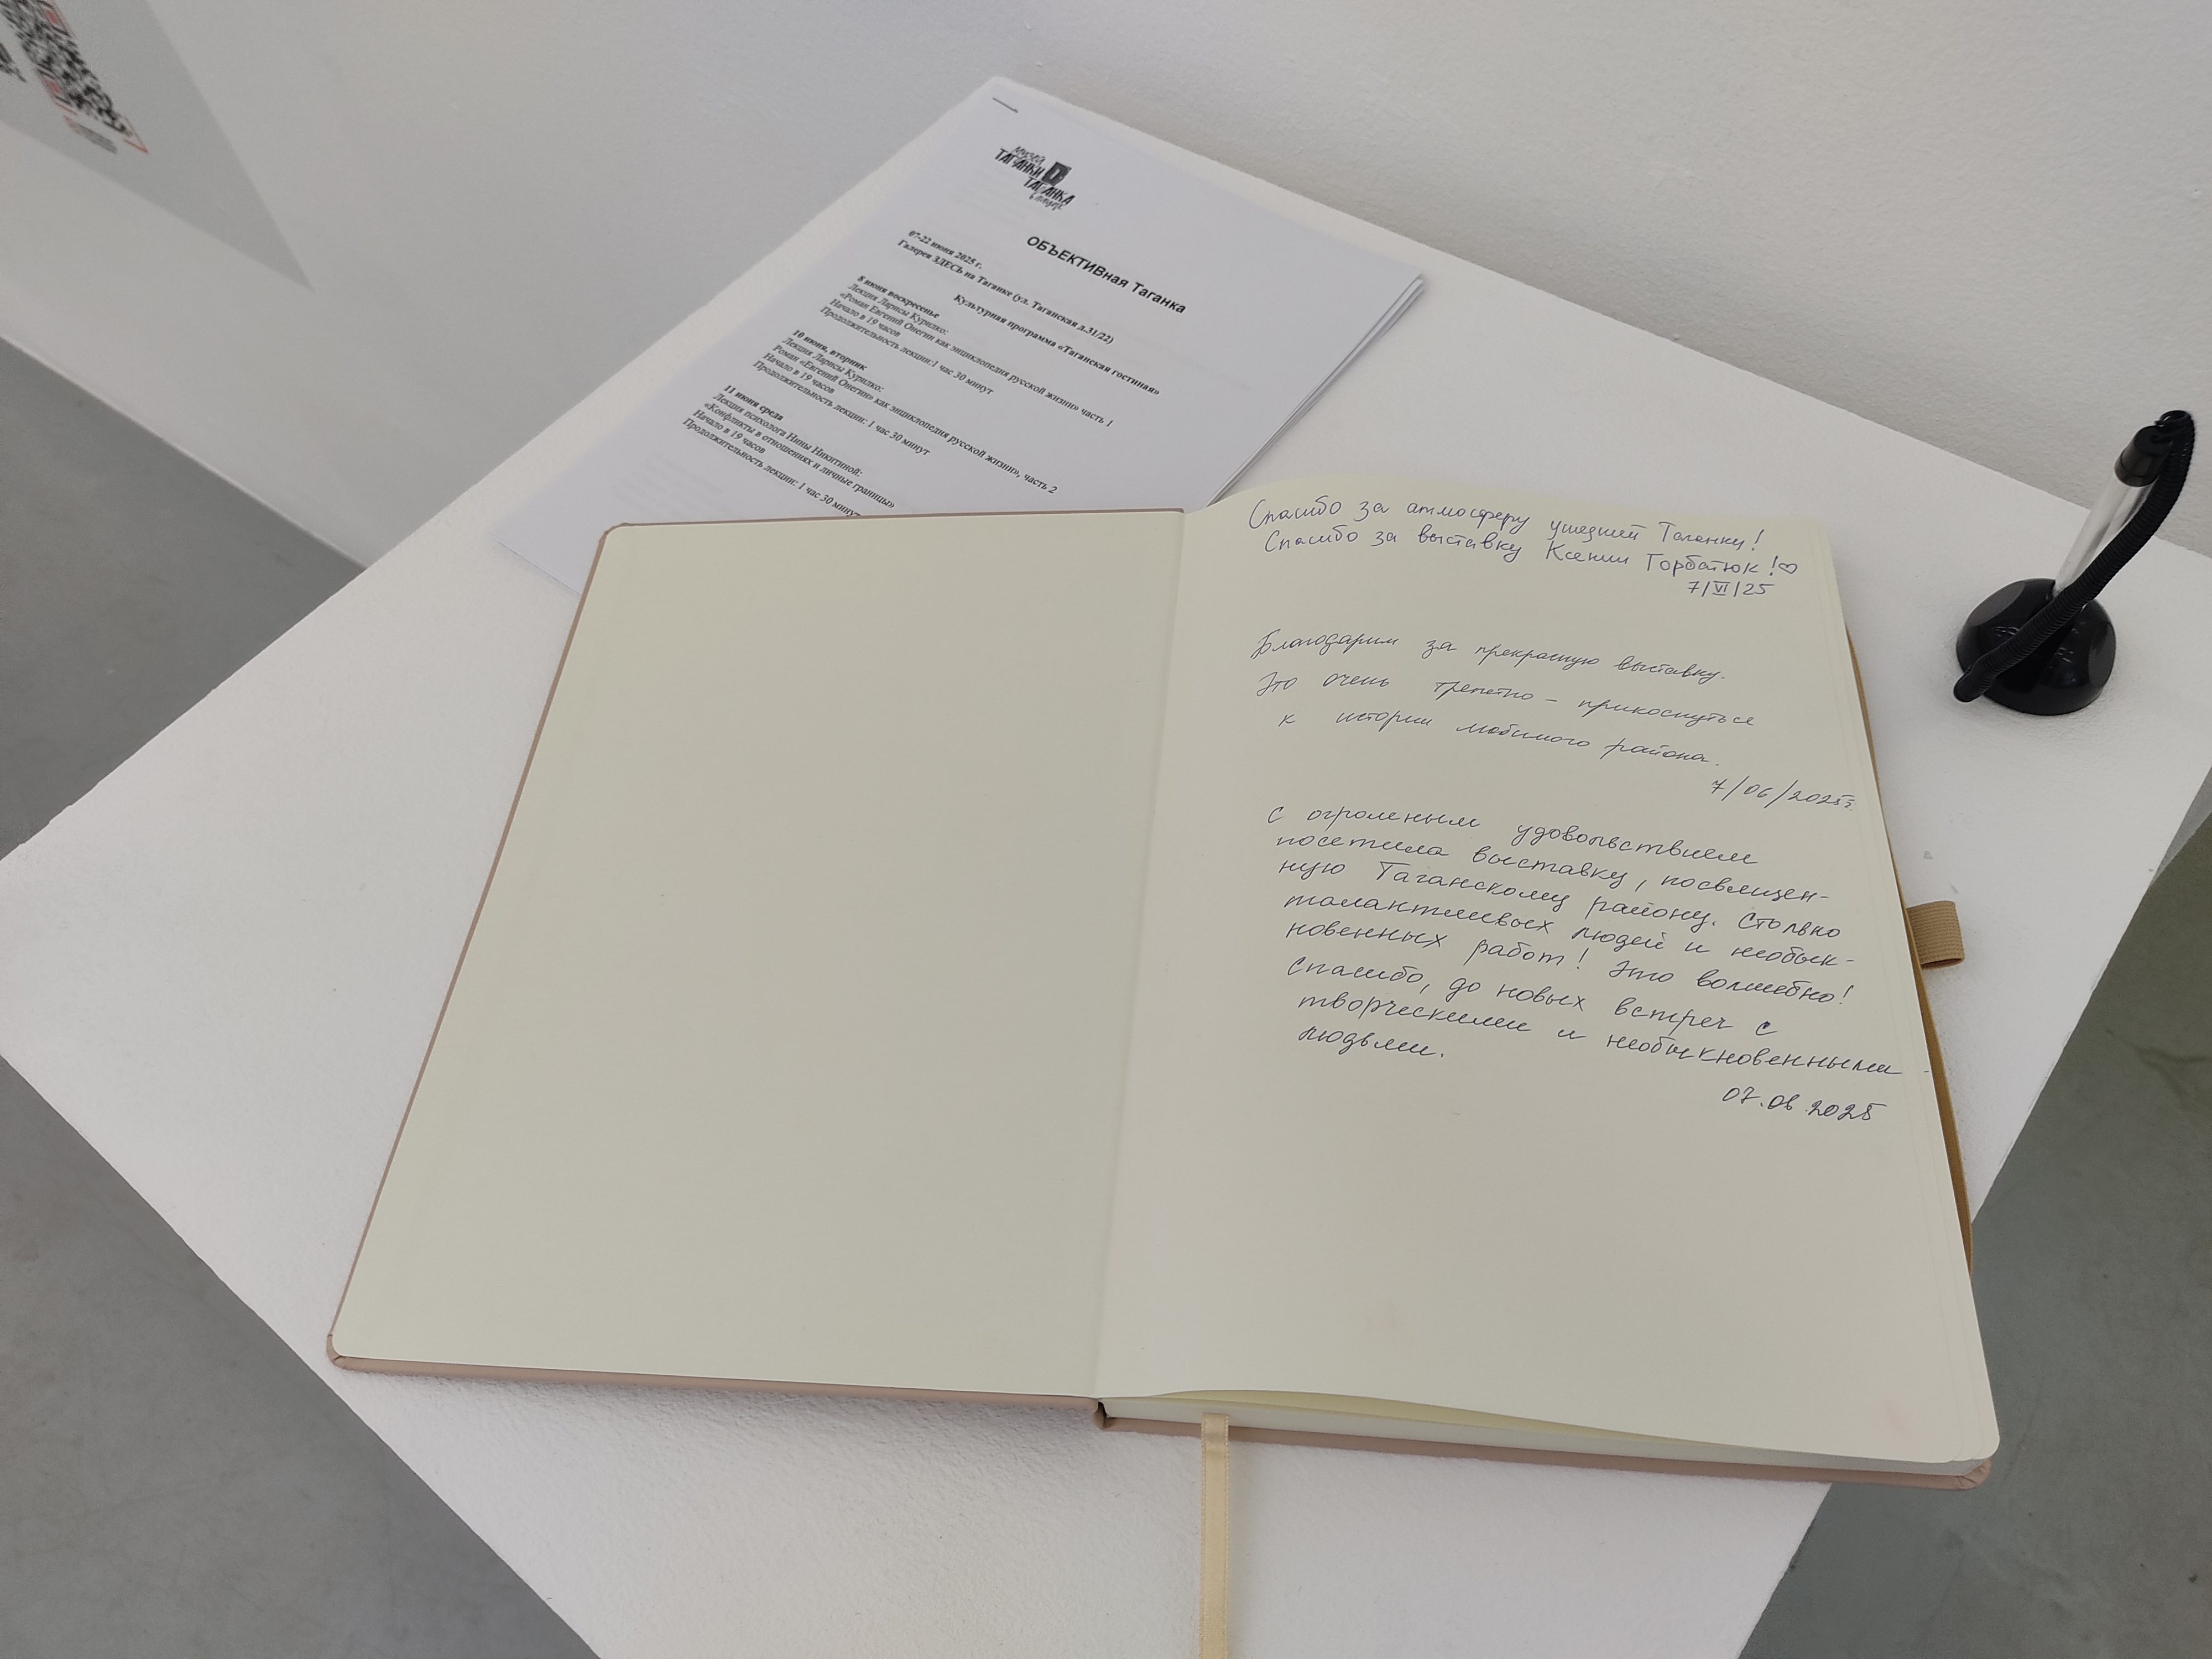 МУЗЕЙ
ТАГАНКИ
ТАГАНКА
ОБЪЕКТИВная Таганка
07-22 июня 2025 г.
Галерея ЗДЕСЬ на Таганке (ул. Таганская д.31/22)
Культурная программа «Таганская гостиная»
8 июня воскресенье
Лекция Ларисы Курилко:
«Роман Евгений Онегин как энциклопедия русской жизни» часть 1
Начало в 19 часов
Продолжительность лекции:1 час 30 минут
10 июня, вторник
Лекция Ларисы Курилко:
Роман «Евгений Онегин» как энциклопедия русской жизни», часть 2
Начало в 19 часов
Продолжительность лекции: 1 час 30 минут
11 июня среда
Лекция психолога Нины Никитиной:
«Конфликты в отношениях и личные границы»
Начало в 19 часов
Продолжительность лекции: 1 час 30 минут
Спасибо за атмосферу ушедшей Таганки!
Спасибо за выставку Ксении Горбатюк!♡
7/VI/25
Благодарим за прекрасную выставку.
Это очень трепетно – прикоснуться
к истории любимого района.
7/06/2025г.
С огромным удовольствием
посетила выставку, посвящен-
ную Таганскому району. Столько
талантливых людей и необык-
новенных работ! Это волшебно!
Спасибо, до новых встреч с
творческими и необыкновенными
людьми.
07.06.2025